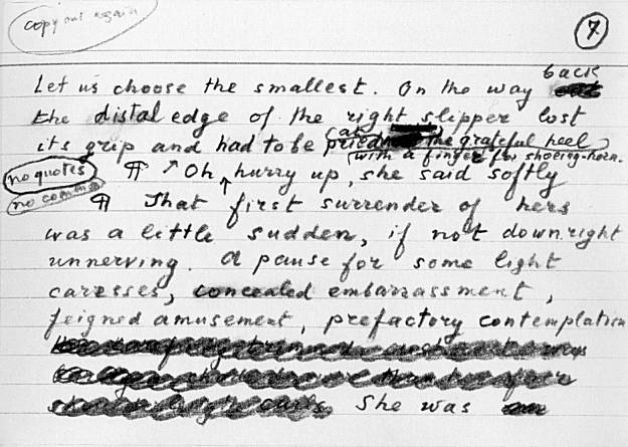 copy out again
7
Let us choose the smallest. On the way back
the distal edge of the right slipper lost
its grip and had to be pried at the grateful heel
with a finger for shoeing-horn.
no quotes ¶ Oh hurry up, she said softly
no comma ¶ That first surrender of hers
was a little sudden, if not downright
unnerving. A pause for some light
caresses, concealed embarrassment,
feigned amusement, prefactory contemplation
She was